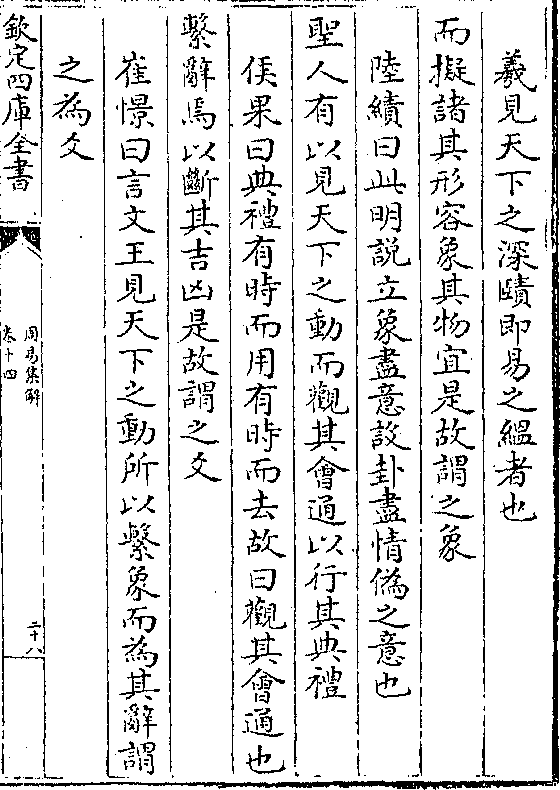 羲見天下之深賾即易之緼者也
而擬諸其形容象其物宜是故謂之象
陸績曰此明說立象盡意設卦盡情偽之意也
聖人有以見天下之動而觀其會通以行其典禮
侯果曰典禮有時而用有時而去故曰觀其會通也
繫辭焉以斷其吉凶是故謂之爻
崔憬曰言文王見天下之動所以繫象而為其辭謂
之為爻
欽定四庫全書
周易集解
卷十四
二十八